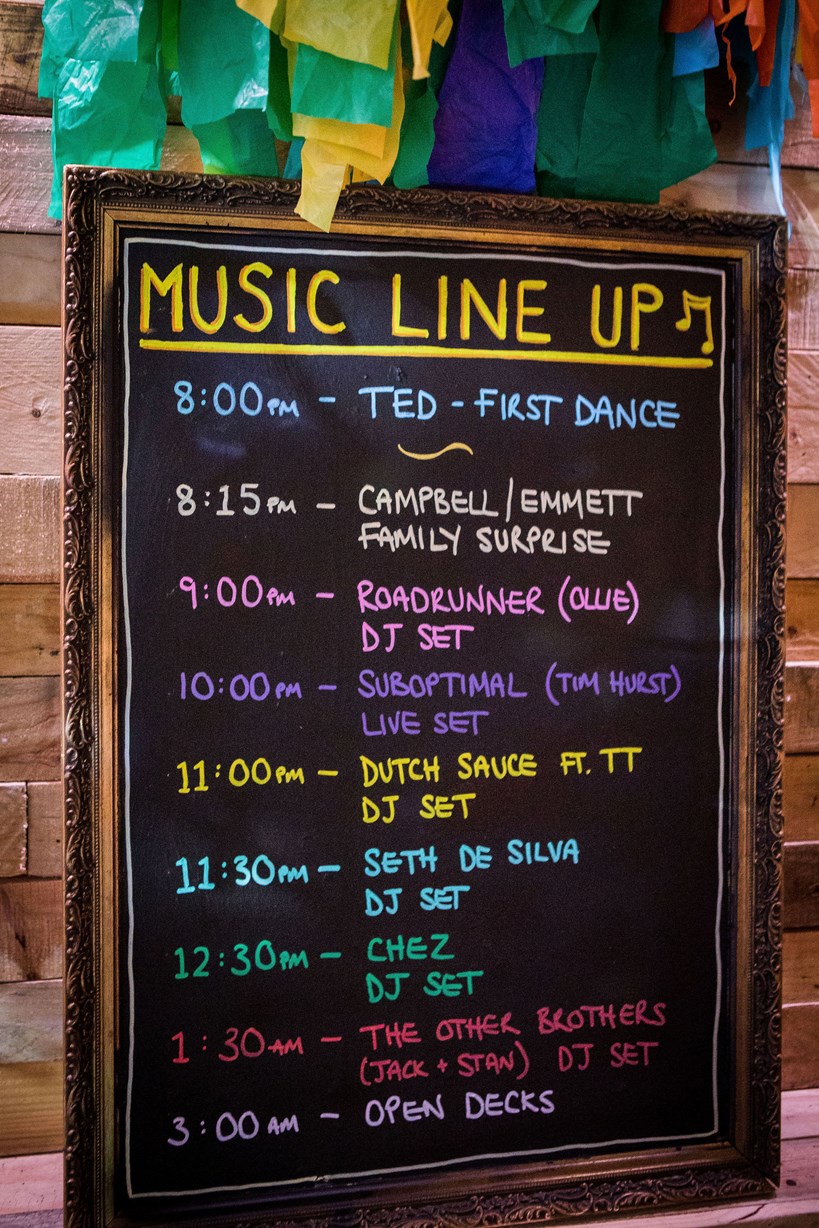 MUSIC LINE UP ♫
8:00PM - TED - FIRST DANCE
8:15PM - CAMPBELL/EMMETT
FAMILY SURPRISE
9:00PM - ROADRUNNER (OLLIE)
DJ SET
10:00PM - SUBOPTIMAL (TIM HURST)
LIVE SET
11:00PM - DUTCH SAUCE FT. TT
DJ SET
11:30PM - SETH DE SILVA
DJ SET
12:30PM - CHEZ
DJ SET
1:30AM - THE OTHER BROTHERS
(JACK + STAN) DJ SET
3:00AM - OPEN DECKS